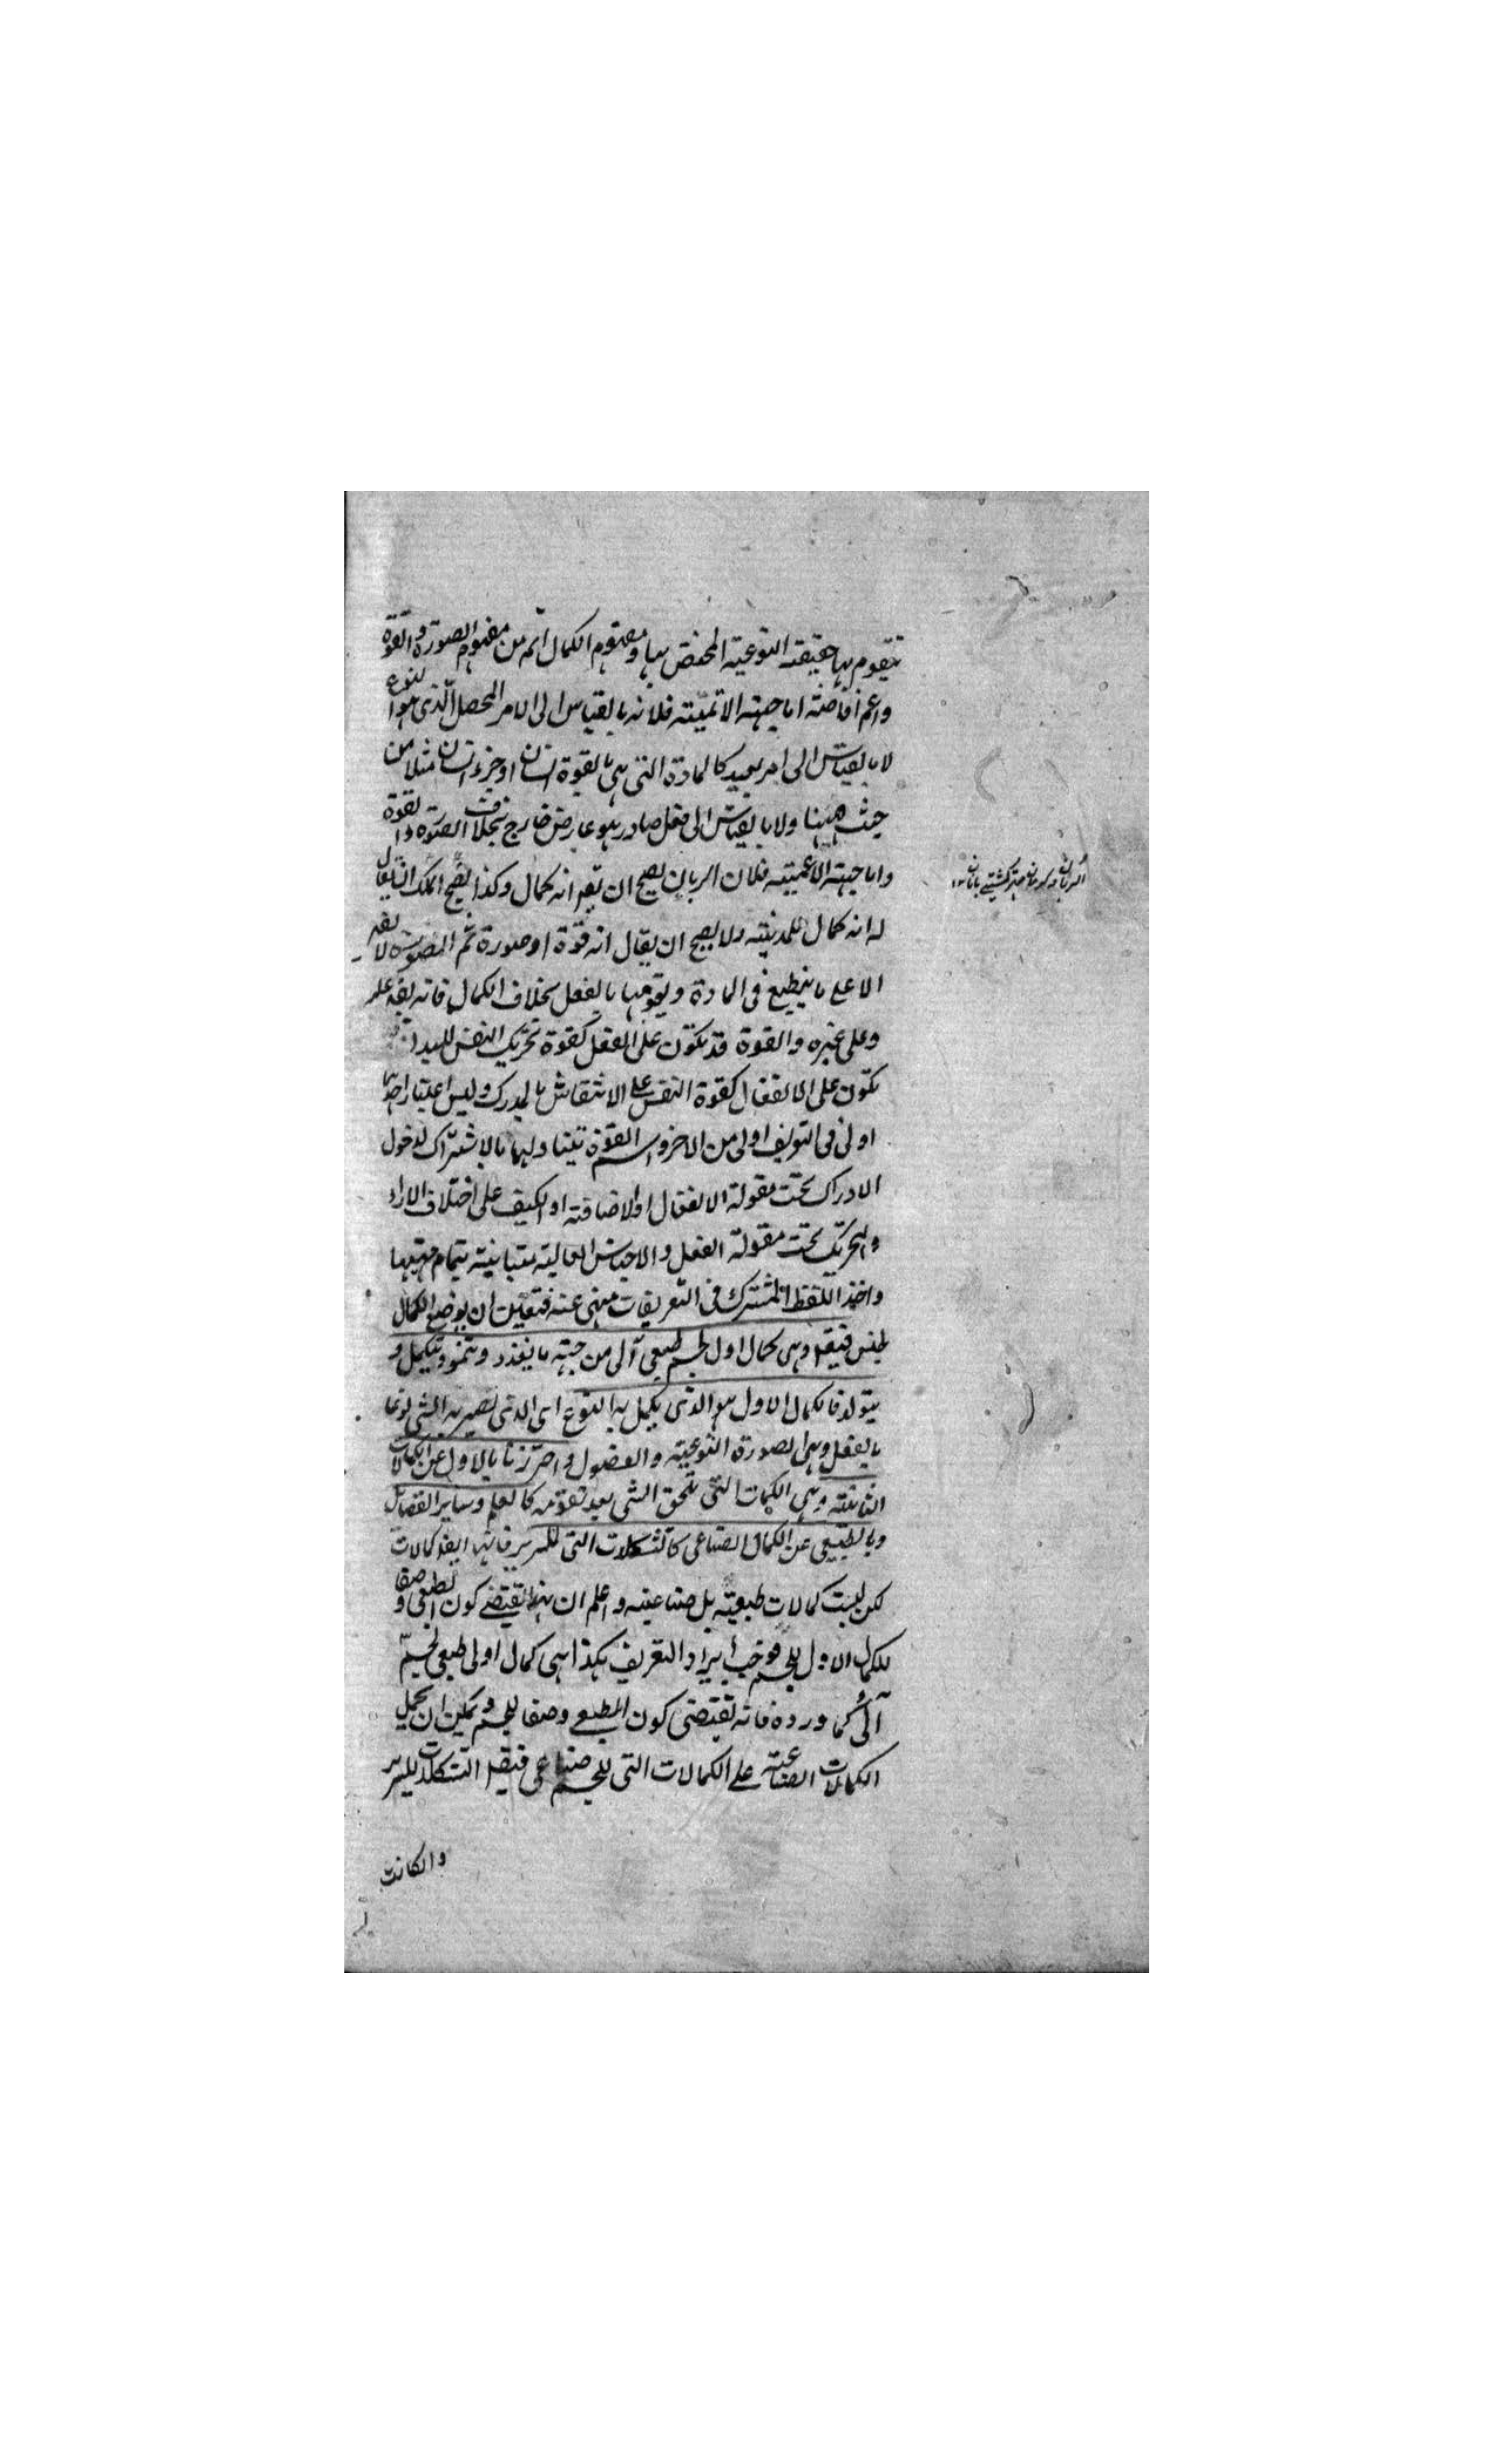 تتقوم بها حقيقته النوعية المختص بها ومفهوم الكمال اتم من مفهوم الصورة والقوة
واعم افاضته اما جهته الاتميته فلانه بالقياس الى الامر المحصل الذى هو النوع
لا بالقياس الى امر بعيد كالمادة التى هى بالقوة انسان او جزء انسان مثلا من
حيث هيهنا ولا بالقياس الى فعل صادر هو عارض خارج بخلاف الصورة والقوة
واما جهته الاعميته فلان الربان يصح ان يقر انه كمال وكذا يصح الملك ان يقال
له انه كمال للمدينته ولا يصح ان يقال انه قوة او صورة ثم الصورة لا يقر
الا على ما ينطبع فى المادة ويقومها بالفعل بخلاف الكمال فانه يقر عليه
وعلى غيره والقوة قد تكون على الفعل كقوة تحريك النفس للبدن
تكون على الانفعال كقوة النفس على الانتقاش بالمدرك وليس اعتبار احدهما
اولى فى التعريف اولى من الاخر واسم القوة تتناولهما بالاشتراك لدخول
الادراك تحت مقولة الانفعال او الاضافته او الكيف على اختلاف الاراء
والتحريك تحت مقولة الفعل والاجناس العاليته متباينته بتمام مهيتها
واخذ اللفظ المشترك فى التعريفات منهى عنه فتعين ان يوضع الكمال
لجنس فيقر وهى كمال اول لجسم طبعى آلى من جهته ما يغذد وتنمو وتكمل و
يتولد فالكمال الاول هو الذى يكمل به النوع اى الذى تصير به الشى نوعا
بالفعل وهى الصورة النوعيته والفصول واحترزنا بالاول عن الكمالات
الثانيته وهى الكمات التى تلحق الشى بعد تقومه كالعلم وساير الفضائل
وبالطبيعى عن الكمال الصناعى كالتشكلات التى للسرير فانها ايضا كمالات
لكن ليست كمالات طبعيته بل صناعيته واعلم ان هذا تقتضى كون الطبعى وصفا
للكمال الاول للجسم فوجب ايراد التعريف هكذا هى كمال اولى طبعى لجسم
آلى كما ورده فانه تقتضى كون الطبعى وصفا للجسم ويمكن ان يحمل
الكمالات الصناعيته على الكمالات التى للجسم صناعى فيقر التشكلات للسرير
والكانت